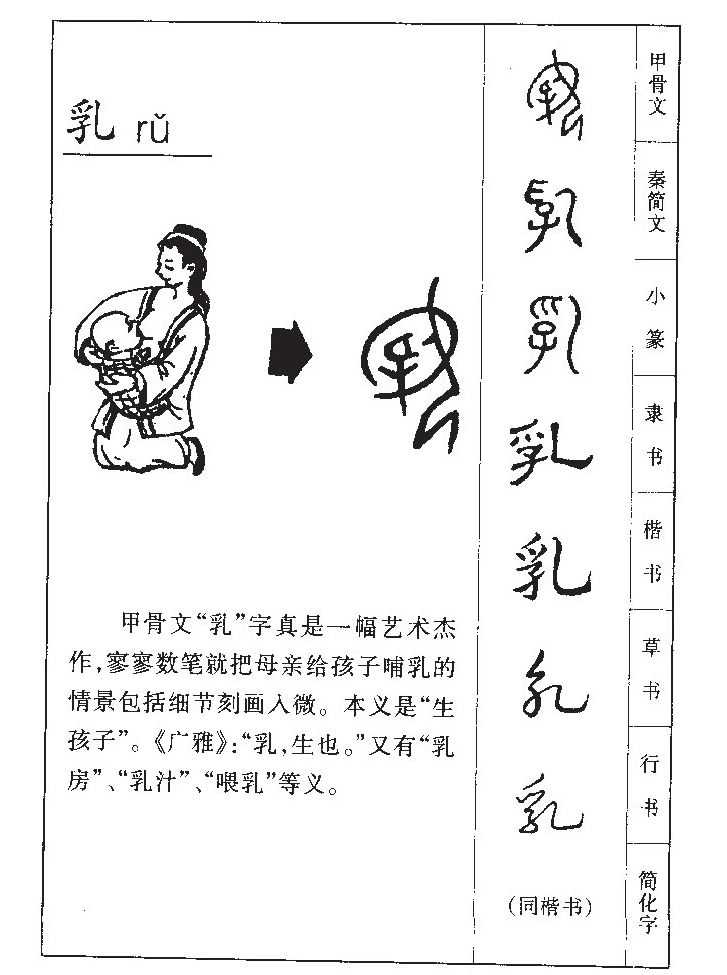 乳 rǔ
甲骨文“乳”字真是一幅艺术杰
作,寥寥数笔就把母亲给孩子哺乳的
情景包括细节刻画入微。本义是“生
孩子”。《广雅》:“乳,生也。”又有“乳
房”、“乳汁”、“喂乳”等义。
乳
乳
乳
乳
乳
乳
乳
(同楷书)
甲骨文
秦简文
小篆
隶书
楷书
草书
行书
简化字